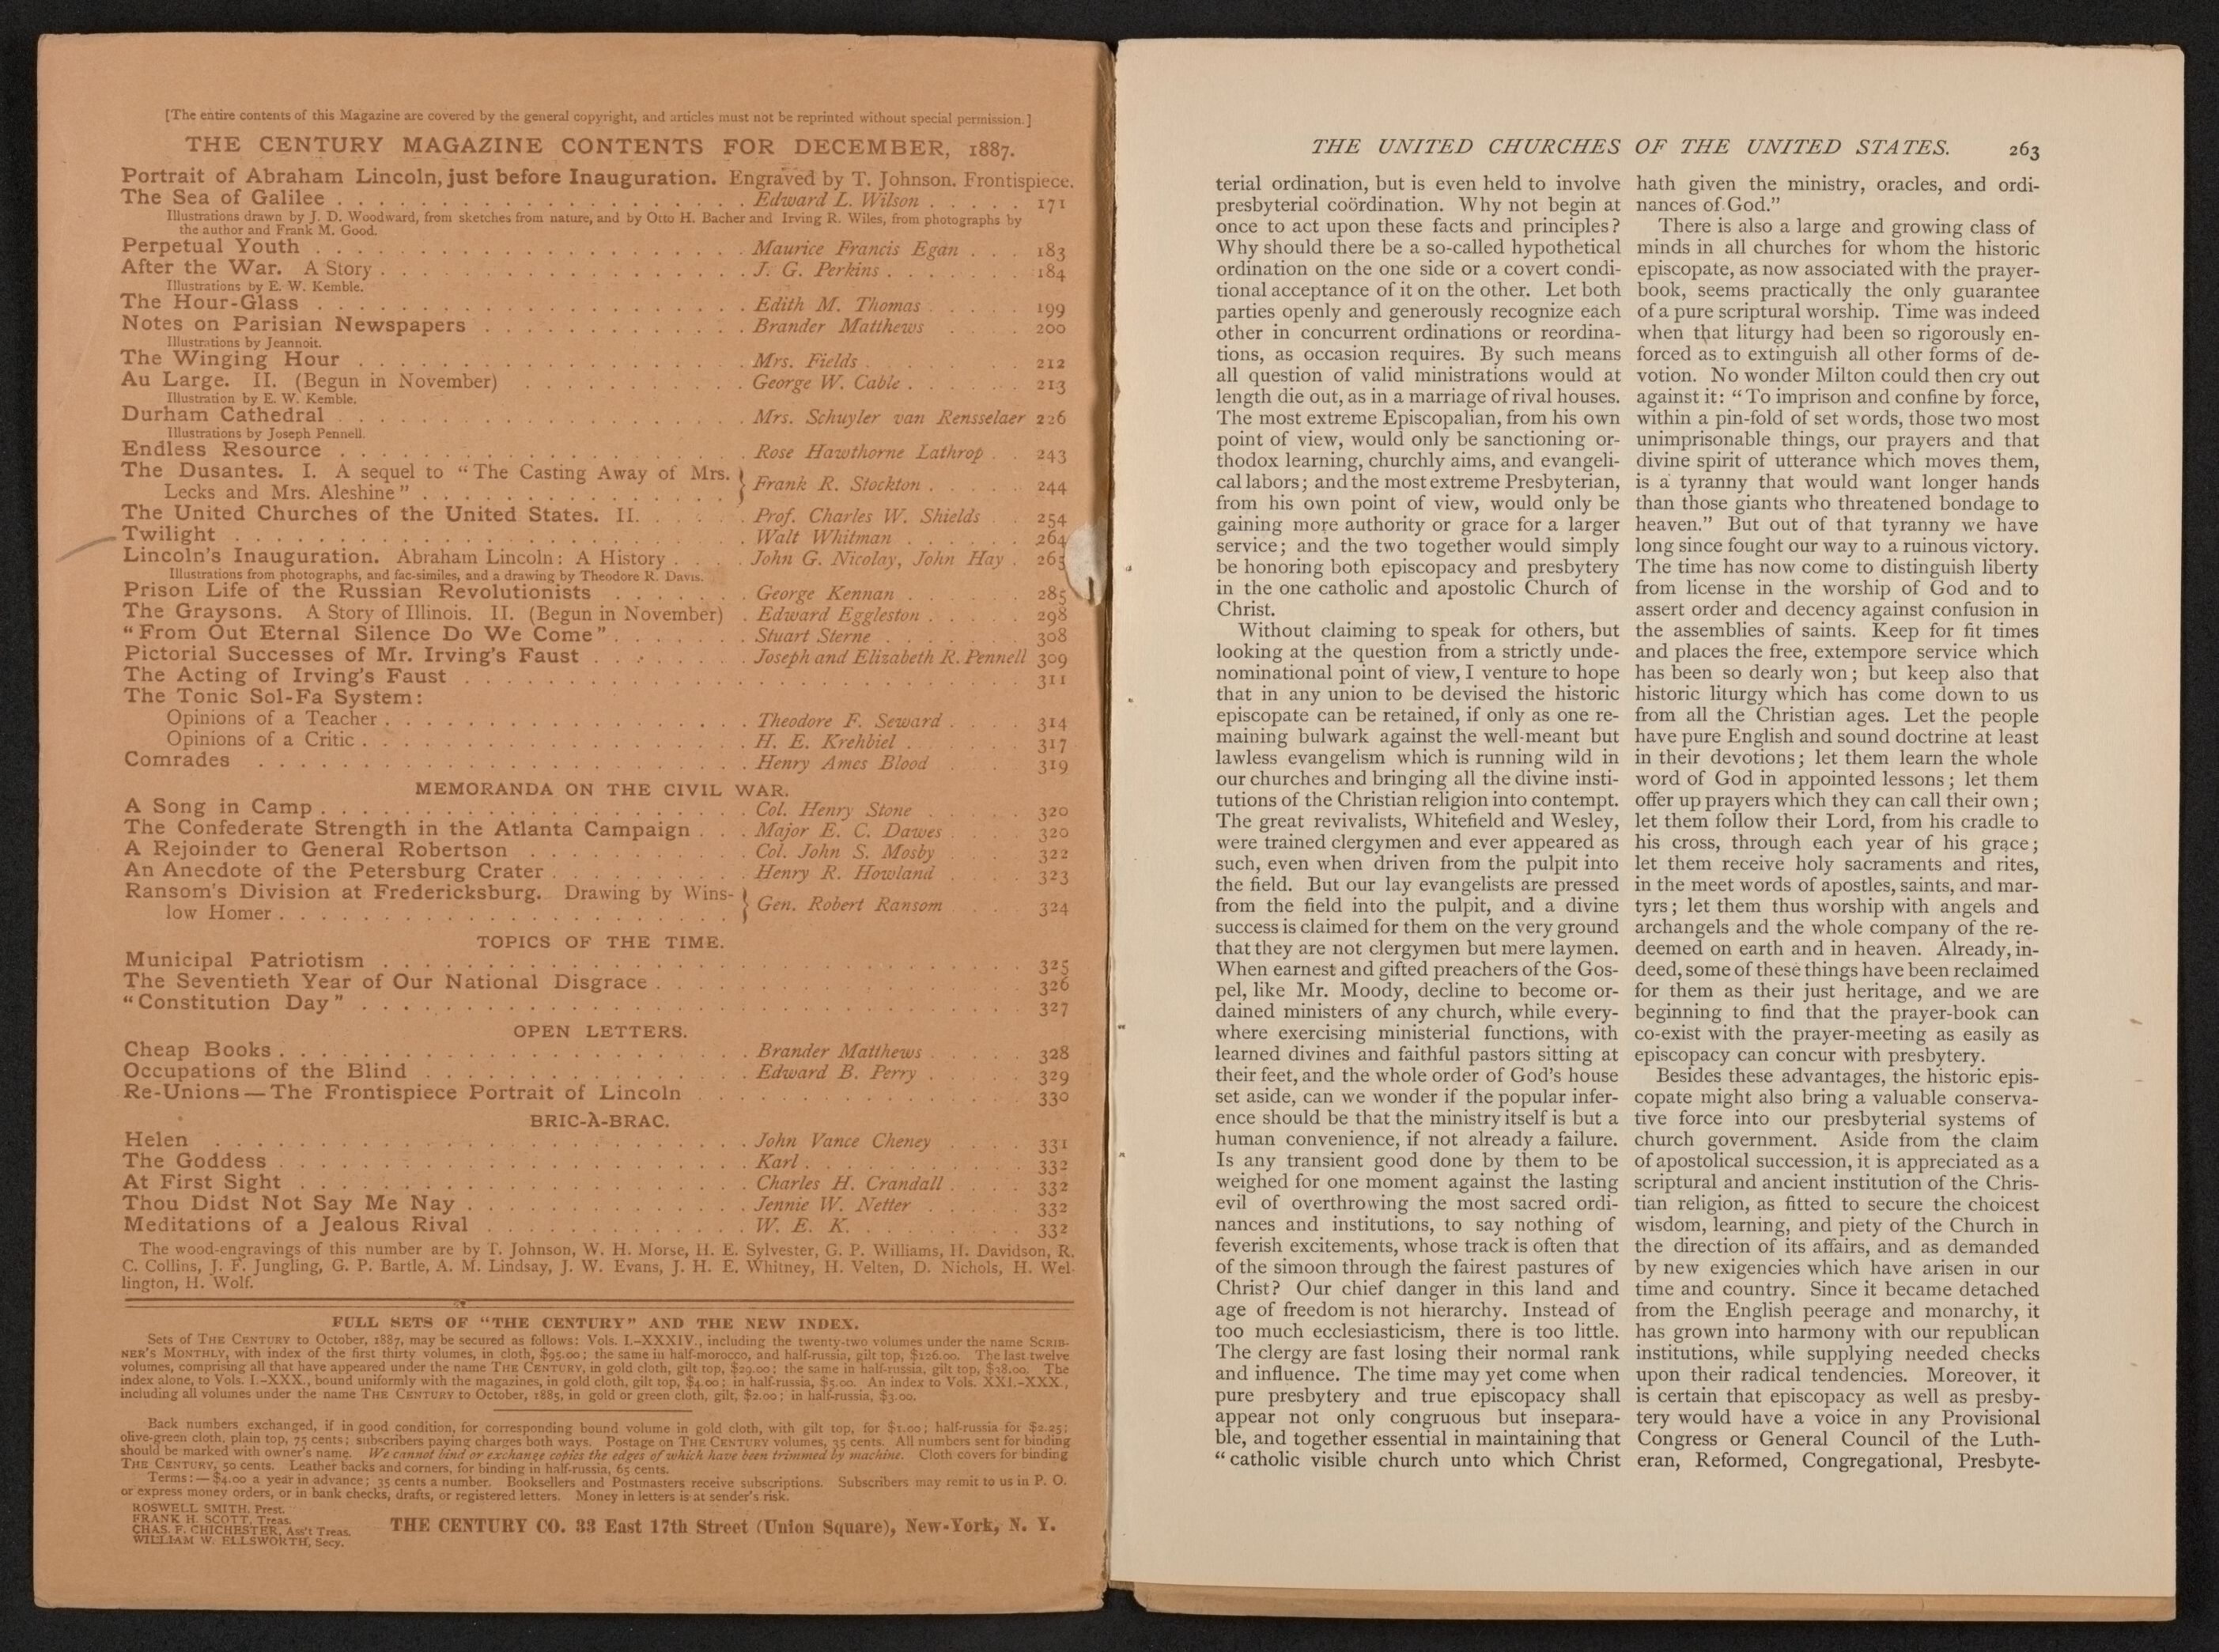 [The entire contents of this Magazine are covered by the general copyright, and articles must not be reprinted without special permission.]
THE CENTURY MAGAZINE CONTENTS FOR DECEMBER, 1887.
Portrait of Abraham Lincoln, just before Inauguration. Engraved by T. Johnson. Frontispiece.
The Sea of Galilee . . . Edward L. Wilson . . . 171
Illustrations drawn by J. D. Woodward, from sketches from nature, and by Otto H. Bacher and Irving R. Wiles, from photographs by
the author and Frank M. Good.
Perpetual Youth . . . Maurice Francis Egan . . . 183
After the War. A Story . . . J. G. Perkins . . . 184
Illustrations by E. W. Kemble.
The Hour-Glass . . . Edith M. Thomas . . . 199
Notes on Parisian Newspapers . . . Brander Matthews 200
Illustrations by Jeannoit.
The Winging Hour . . . Mrs. Fields . . . 212
Au Large. II. (Begun in November) . . . George W. Cable . . . 213
Illustration by E. W. Kemble.
Durham Cathedral . . . Mrs. Schuyler van Rensselaer 226
Illustrations by Joseph Pennell.
Endless Resource . . . Rose Hawthorne Lathrop . . 243
The Dusantes. I. A sequel to "The Casting Away of Mrs.
Lecks and Mrs. Aleshine" . . . } Frank R. Stockton . . . 244
The United Churches of the United States. II. . . . Prof. Charles W. Shields . . 254
Twilight . . . Walt Whitman . . . 264
Lincoln's Inauguration. Abraham Lincoln: A History . . . John G. Nicolay, John Hay . 265
Illustrations from photographs, and fac-similes, and a drawing by Theodore R. Davis.
Prison Life of the Russian Revolutionists . . . George Kennan . . . 285
The Graysons. A Story of Illinois. II. (Begun in November) . Edward Eggleston . . . 298
"From Out Eternal Silence Do We Come" . . . Stuart Sterne . . . 308
Pictorial Successes of Mr. Irving's Faust . . . Joseph and Elizabeth R. Pennell 309
The Acting of Irving's Faust . . . 311
The Tonic Sol-Fa System:
Opinions of a Teacher . . . Theodore F. Seward . . . 314
Opinions of a Critic . . . H. E. Krehbiel . . . 317
Comrades . . . Henry Ames Blood . . . 319
MEMORANDA ON THE CIVIL WAR.
A Song in Camp . . . Col. Henry Stone . . . 320
The Confederate Strength in the Atlanta Campaign . . . Major E. C. Dawes . . . 320
A Rejoinder to General Robertson . . . Col. John S. Mosby . . . 322
An Anecdote of the Petersburg Crater . . . Henry R. Howland . . . 323
Ransom's Division at Fredericksburg. Drawing by Wins-
low Homer . . . } Gen. Robert Ransom . . . 324
TOPICS OF THE TIME.
Municipal Patriotism . . . 325
The Seventieth Year of Our National Disgrace . . . 326
"Constitution Day" . . . 327
OPEN LETTERS.
Cheap Books . . . Brander Matthews . . . 328
Occupations of the Blind . . . Edward B. Perry . . . 329
Re-Unions — The Frontispiece Portrait of Lincoln . . . 330
BRIC-À-BRAC.
Helen . . . John Vance Cheney . . . 331
The Goddess . . . Karl . . . 332
At First Sight . . . Charles H. Crandall . . . 332
Thou Didst Not Say Me Nay . . . Jennie W. Netter . . . 332
Meditations of a Jealous Rival . . . W. E. K. . . . 332
The wood-engravings of this number are by T. Johnson, W. H. Morse, H. E. Sylvester, G. P. Williams, H. Davidson, R.
C. Collins, J. F. Jungling, G. P. Bartle, A. M. Lindsay, J. W. Evans, J. H. E. Whitney, H. Velten, D. Nichols, H. Wel-
lington, H. Wolf.
FULL SETS OF "THE CENTURY" AND THE NEW INDEX.
Sets of THE CENTURY to October, 1887, may be secured as follows: Vols. I.–XXXIV., including the twenty-two volumes under the name SCRIB-
NER'S MONTHLY, with index of the first thirty volumes, in cloth, $95.00; the same in half-morocco, and half-russia, gilt top, $126.00. The last twelve
volumes, comprising all that have appeared under the name THE CENTURY, in gold cloth, gilt top, $29.00; the same in half-russia, gilt top, $38.00. The
index alone, to Vols. I.–XXX., bound uniformly with the magazines, in gold cloth, gilt top, $4.00; in half-russia, $5.00. An index to Vols. XXI.–XXX.,
including all volumes under the name THE CENTURY to October, 1885, in gold or green cloth, gilt, $2.00; in half-russia, $3.00.
Back numbers exchanged, if in good condition, for corresponding bound volume in gold cloth, with gilt top, for $1.00; half-russia for $2.25;
olive-green cloth, plain top, 75 cents; subscribers paying charges both ways. Postage on THE CENTURY volumes, 35 cents. All numbers sent for binding
should be marked with owner's name. We cannot bind or exchange copies the edges of which have been trimmed by machine. Cloth covers for binding
THE CENTURY, 50 cents. Leather backs and corners, for binding in half-russia, 65 cents.
Terms: — $4.00 a year in advance; 35 cents a number. Booksellers and Postmasters receive subscriptions. Subscribers may remit to us in P. O.
or express money orders, or in bank checks, drafts, or registered letters. Money in letters is at sender's risk.
ROSWELL SMITH, Prest.
FRANK H. SCOTT, Treas.
CHAS. F. CHICHESTER, Ass't Treas.
WILLIAM W. ELLSWORTH, Secy.
THE CENTURY CO. 33 East 17th Street (Union Square), New-York, N. Y.
THE UNITED CHURCHES OF THE UNITED STATES. 263
terial ordination, but is even held to involve
presbyterial coördination. Why not begin at
once to act upon these facts and principles?
Why should there be a so-called hypothetical
ordination on the one side or a covert condi-
tional acceptance of it on the other. Let both
parties openly and generously recognize each
other in concurrent ordinations or reordina-
tions, as occasion requires. By such means
all question of valid ministrations would at
length die out, as in a marriage of rival houses.
The most extreme Episcopalian, from his own
point of view, would only be sanctioning or-
thodox learning, churchly aims, and evangeli-
cal labors; and the most extreme Presbyterian,
from his own point of view, would only be
gaining more authority or grace for a larger
service; and the two together would simply
be honoring both episcopacy and presbytery
in the one catholic and apostolic Church of
Christ.
Without claiming to speak for others, but
looking at the question from a strictly unde-
nominational point of view, I venture to hope
that in any union to be devised the historic
episcopate can be retained, if only as one re-
maining bulwark against the well-meant but
lawless evangelism which is running wild in
our churches and bringing all the divine insti-
tutions of the Christian religion into contempt.
The great revivalists, Whitefield and Wesley,
were trained clergymen and ever appeared as
such, even when driven from the pulpit into
the field. But our lay evangelists are pressed
from the field into the pulpit, and a divine
success is claimed for them on the very ground
that they are not clergymen but mere laymen.
When earnest and gifted preachers of the Gos-
pel, like Mr. Moody, decline to become or-
dained ministers of any church, while every-
where exercising ministerial functions, with
learned divines and faithful pastors sitting at
their feet, and the whole order of God's house
set aside, can we wonder if the popular infer-
ence should be that the ministry itself is but a
human convenience, if not already a failure.
Is any transient good done by them to be
weighed for one moment against the lasting
evil of overthrowing the most sacred ordi-
nances and institutions, to say nothing of
feverish excitements, whose track is often that
of the simoon through the fairest pastures of
Christ? Our chief danger in this land and
age of freedom is not hierarchy. Instead of
too much ecclesiasticism, there is too little.
The clergy are fast losing their normal rank
and influence. The time may yet come when
pure presbytery and true episcopacy shall
appear not only congruous but insepara-
ble, and together essential in maintaining that
"catholic visible church unto which Christ
hath given the ministry, oracles, and ordi-
nances of God."
There is also a large and growing class of
minds in all churches for whom the historic
episcopate, as now associated with the prayer-
book, seems practically the only guarantee
of a pure scriptural worship. Time was indeed
when that liturgy had been so rigorously en-
forced as to extinguish all other forms of de-
votion. No wonder Milton could then cry out
against it: "To imprison and confine by force,
within a pin-fold of set words, those two most
unimprisonable things, our prayers and that
divine spirit of utterance which moves them,
is a tyranny that would want longer hands
than those giants who threatened bondage to
heaven." But out of that tyranny we have
long since fought our way to a ruinous victory.
The time has now come to distinguish liberty
from license in the worship of God and to
assert order and decency against confusion in
the assemblies of saints. Keep for fit times
and places the free, extempore service which
has been so dearly won; but keep also that
historic liturgy which has come down to us
from all the Christian ages. Let the people
have pure English and sound doctrine at least
in their devotions; let them learn the whole
word of God in appointed lessons; let them
offer up prayers which they can call their own;
let them follow their Lord, from his cradle to
his cross, through each year of his grace;
let them receive holy sacraments and rites,
in the meet words of apostles, saints, and mar-
tyrs; let them thus worship with angels and
archangels and the whole company of the re-
deemed on earth and in heaven. Already, in-
deed, some of these things have been reclaimed
for them as their just heritage, and we are
beginning to find that the prayer-book can
co-exist with the prayer-meeting as easily as
episcopacy can concur with presbytery.
Besides these advantages, the historic epis-
copate might also bring a valuable conserva-
tive force into our presbyterial systems of
church government. Aside from the claim
of apostolical succession, it is appreciated as a
scriptural and ancient institution of the Chris-
tian religion, as fitted to secure the choicest
wisdom, learning, and piety of the Church in
the direction of its affairs, and as demanded
by new exigencies which have arisen in our
time and country. Since it became detached
from the English peerage and monarchy, it
has grown into harmony with our republican
institutions, while supplying needed checks
upon their radical tendencies. Moreover, it
is certain that episcopacy as well as presby-
tery would have a voice in any Provisional
Congress or General Council of the Luth-
eran, Reformed, Congregational, Presbyte-